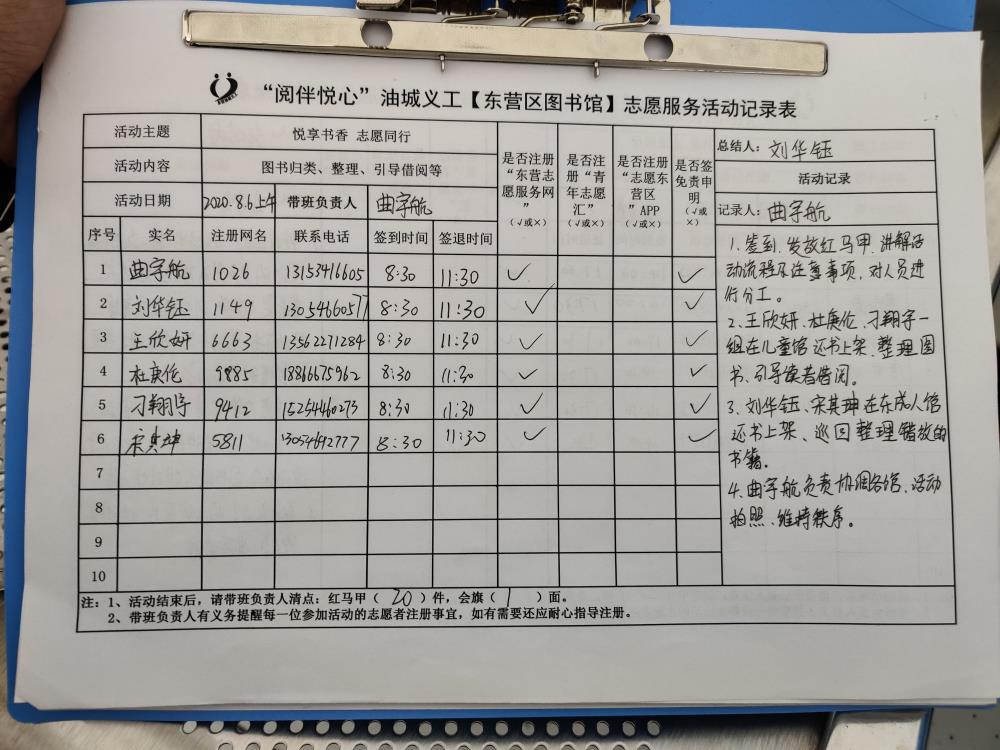 “阅伴悦心”油城义工【东营区图书馆】志愿服务活动记录表
活动主题 悦享书香 志愿同行
活动内容 图书归类、整理、引导借阅等
活动日期 2020.8.6上午 带班负责人 曲宇航
是否注册“东营志愿服务网”（√或×）
是否注册“青年志愿汇”（√或×）
是否注册“志愿东营区”APP（√或×）
是否签免责申明（√或×）
总结人：刘华钰
活动记录
记录人：曲宇航
序号 实名 注册网名 联系电话 签到时间 签退时间
1 曲宇航 1026 13153416605 8:30 11:30 ✓ ✓
2 刘华钰 1149 13054660577 8:30 11:30 ✓ ✓
3 王欣妍 6663 13562271284 8:30 11:30 ✓ ✓
4 杜庚伦 9885 18866675962 8:30 11:30 ✓ ✓
5 刁翔宇 9412 15254460273 8:30 11:30 ✓ ✓
6 宋其珅 5811 13054692777 8:30 11:30 ✓ ✓
7
8
9
10
1.签到、发放红马甲、讲解活
动流程及注意事项，对人员进
行分工。
2、王欣妍、杜庚伦、刁翔宇一
组在儿童馆还书上架、整理图
书、引导读者借阅。
3、刘华钰、宋其珅在东成人馆
还书上架、巡回整理错放的
书籍。
4.曲宇航负责协调各馆、活动
拍照、维持秩序。
注：1、活动结束后，请带班负责人清点：红马甲（20）件，会旗（1）面。
2、带班负责人有义务提醒每一位参加活动的志愿者注册事宜，如有需要还应耐心指导注册。